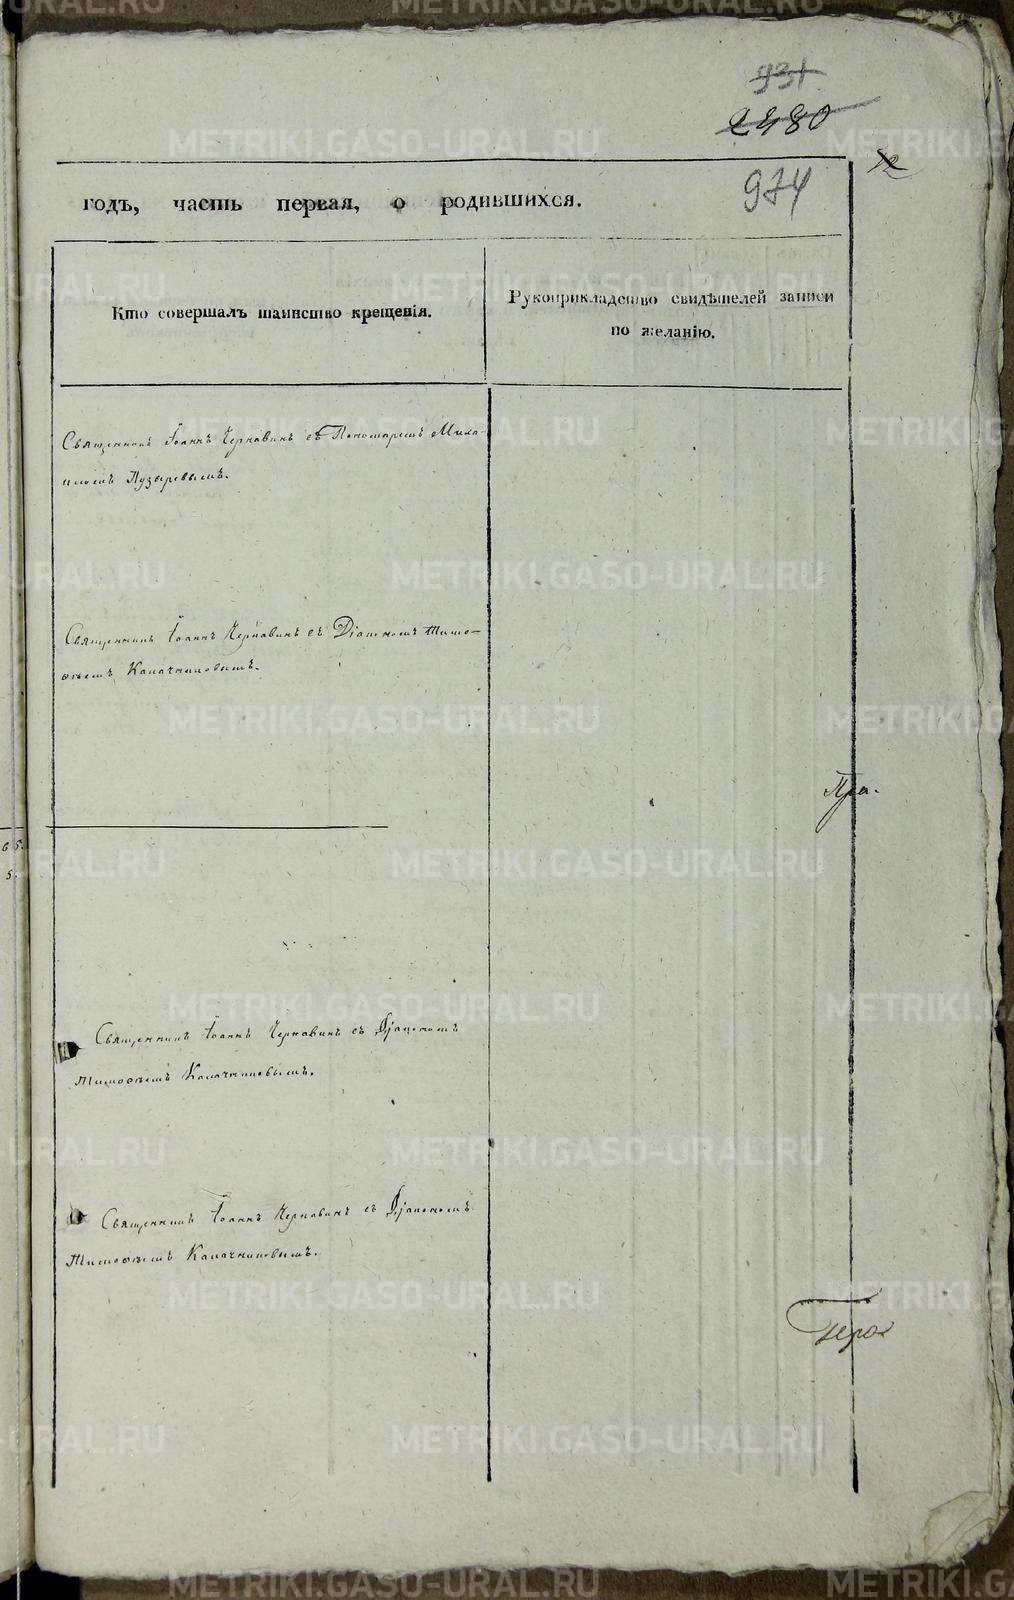 931
2480
12
974
годъ, часть первая, о родившихся.
Кто совершалъ таинство крещенія.
Рукоприкладство свидѣтелей записи
по желанію.
Священникъ Іоаннъ Чернавинъ съ Пономаремъ Миха-
иломъ Пузыревымъ.
Священникъ Іоаннъ Чернавинъ съ Діакономъ Тимо-
ѳѣемъ Калачниковымъ.
65.
5.
Священникъ Іоаннъ Чернавинъ съ Діакономъ
Тимоѳѣемъ Калачниковымъ.
Священникъ Іоаннъ Чернавинъ съ Діакономъ
Тимоѳѣемъ Калачниковымъ.
METRIKI.GASO-URAL.RU